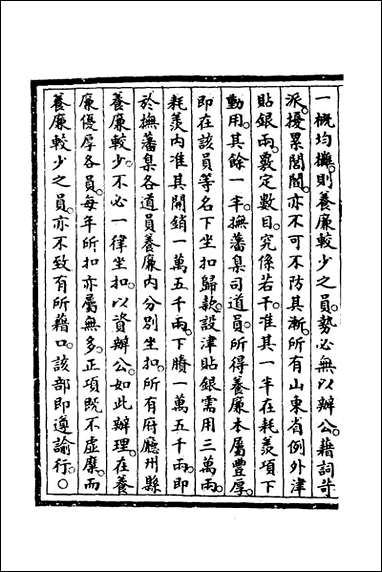 一概均攤則養廉較少之員勢必無以辦公藉詞苛
派擾累閭閻亦不可不防其漸所有山東省例外津
貼銀兩覈定數目究係若干准其一半在耗羨項下
動用其餘一半撫藩臬司道員所得養廉本屬豐厚
即在該員等名下坐扣歸款設津貼銀需用三萬兩
耗羨內准其開銷一萬五千兩下賸一萬五千兩即
於撫藩臬各道員養廉內分別坐扣所有府廳州縣
養廉較少不必一律坐扣以資辦公如此辦理在養
廉優厚各員每年所扣亦屬無多正項既不虛糜而
養廉較少之員亦不致有所藉口該部即遵諭行○